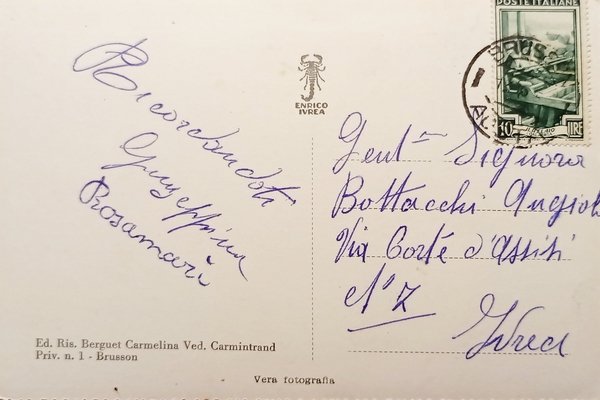 POSTE ITALIANE
10 LIRE
BRUSS
ENRICO
IVREA
Ricordandoti
Giuseppina
Rosamari
Gent Signora
Bottacchi Angiol
Via Corte d'Assisi
N° 2
Ivrea
Ed. Ris. Berguet Carmelina Ved. Carmintrand
Priv. n. 1 - Brusson
Vera fotografia